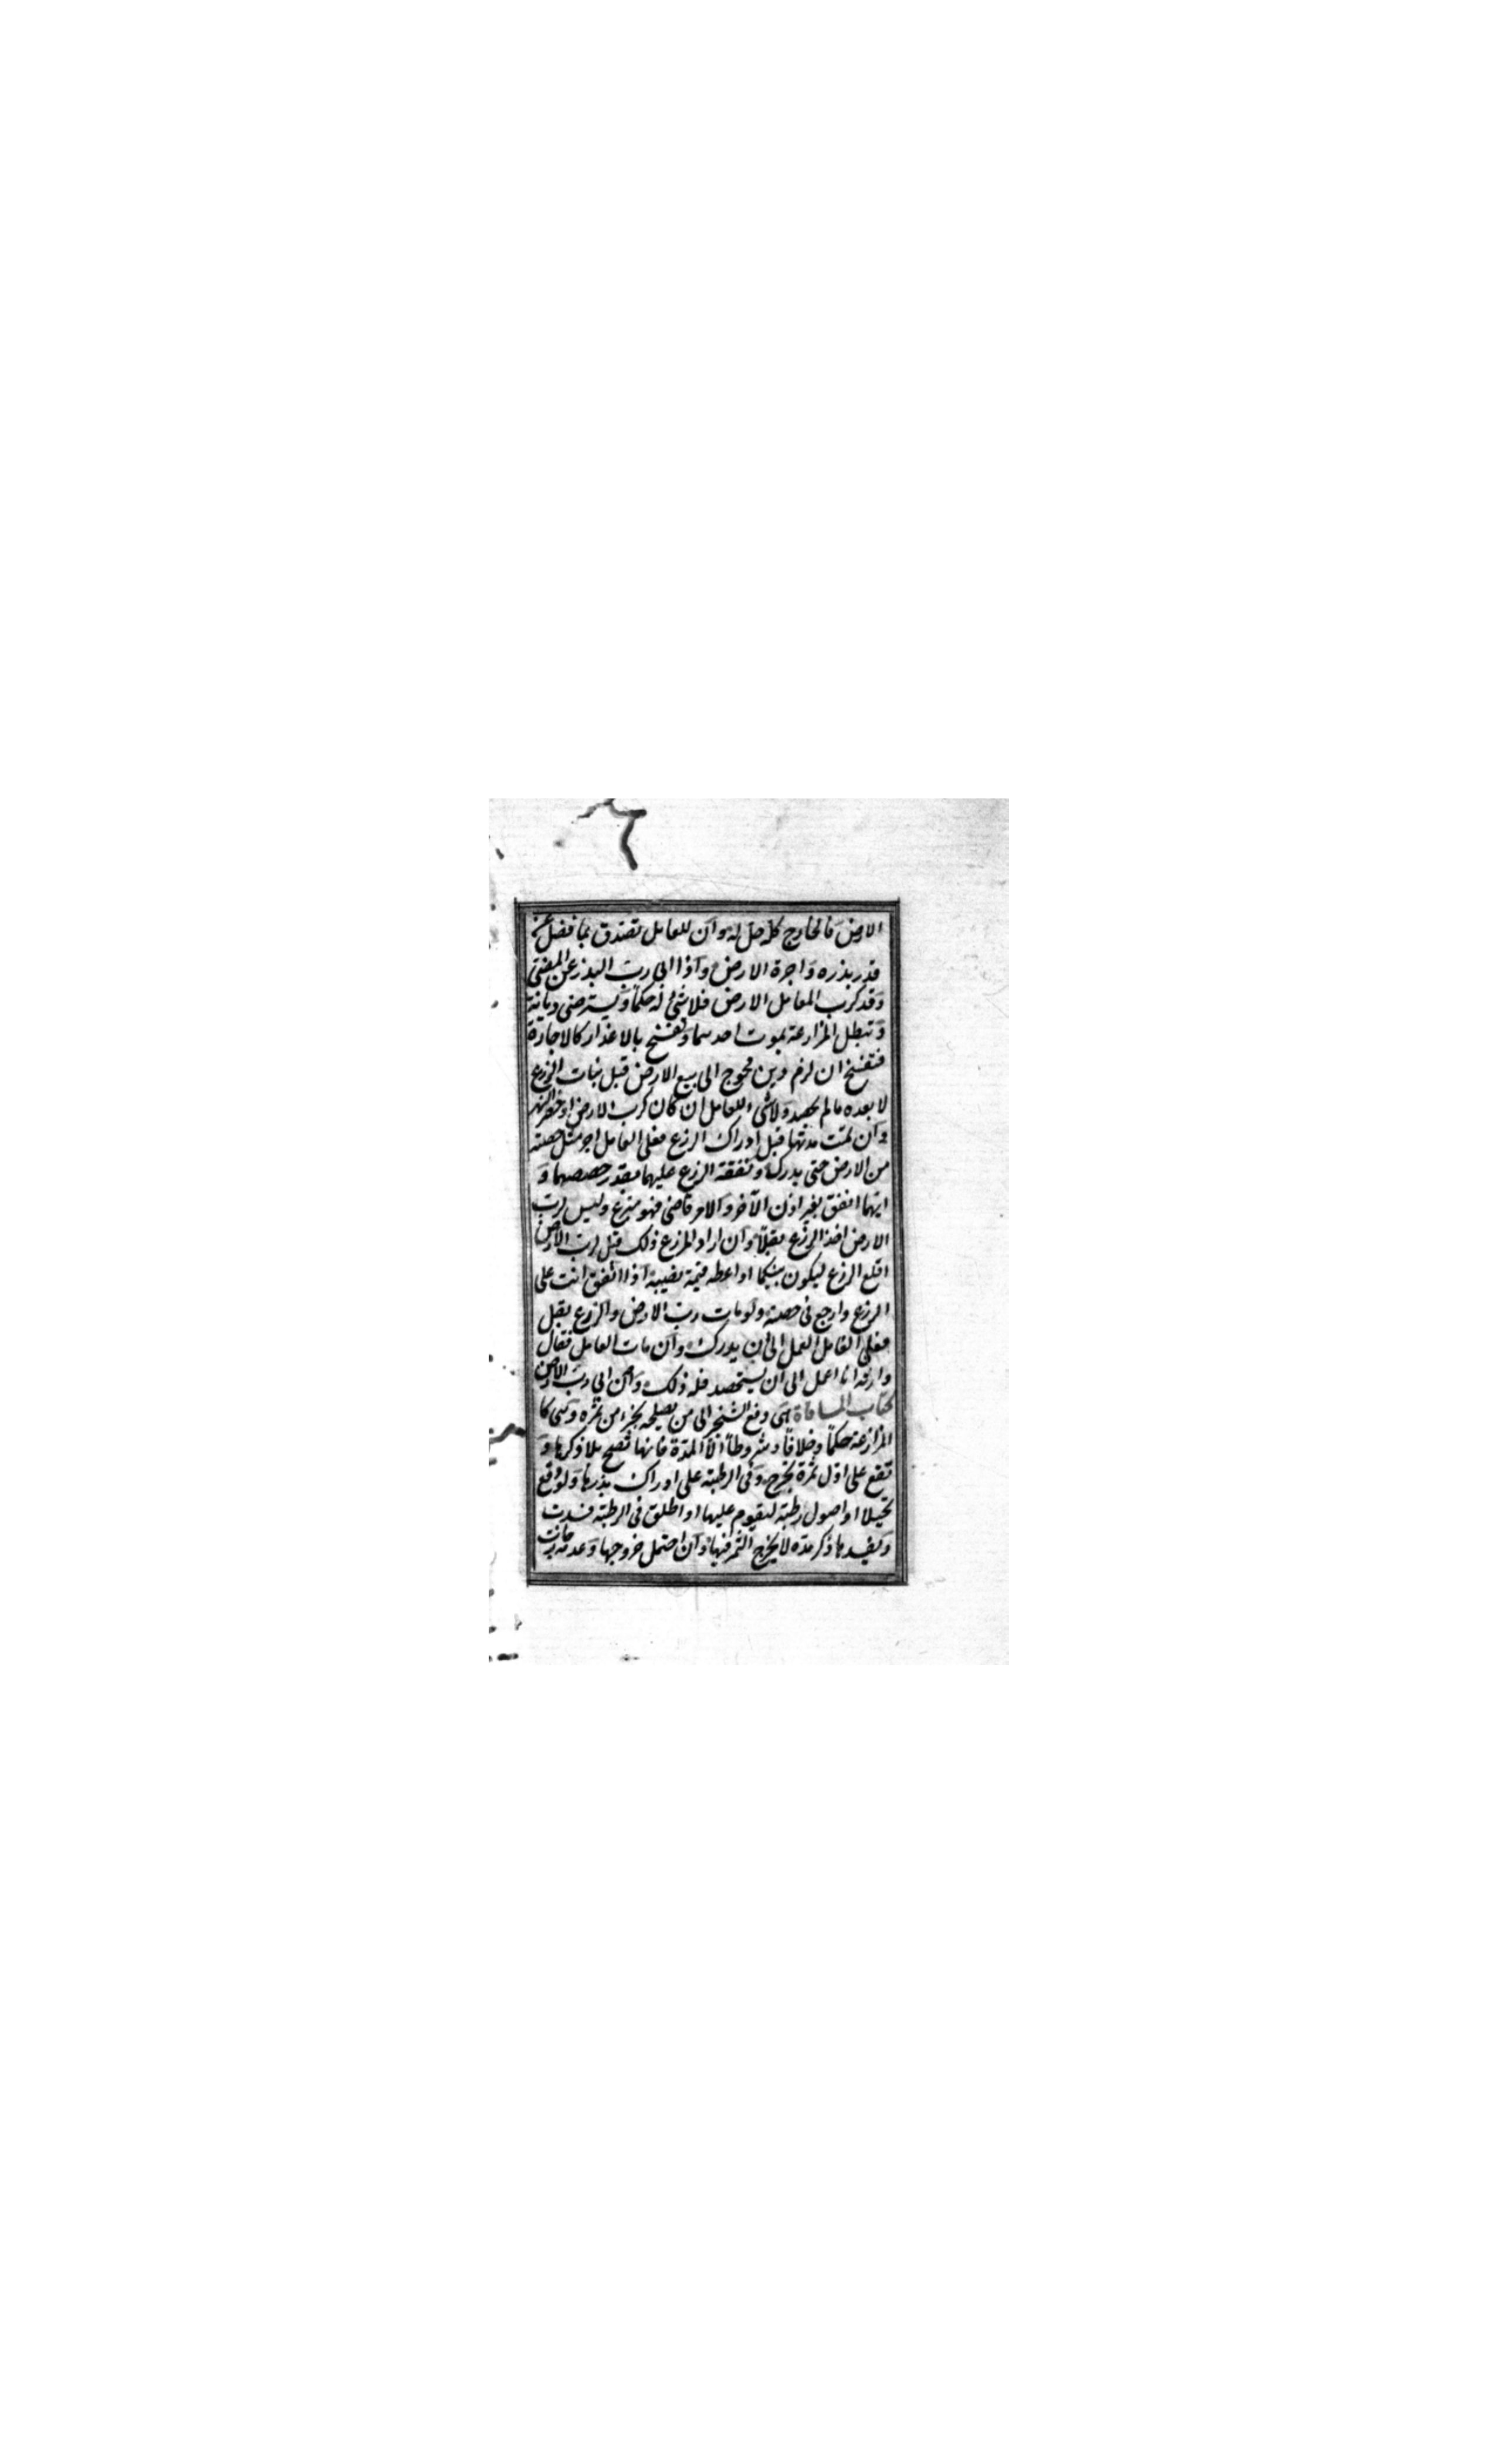 الارض فالخارج كله حل له وان للعامل تصدق بما فضل عن
قدر بذره واجرة الارض واذا ابى رب البذر عن المضي
وقد كرب العامل الارض فلا شيء له حكما ويسترضى ديانة
وتبطل المزارعة بموت احدهما وتفسخ بالاعذار كالاجارة
فتفسخ ان لزم دين محوج الى بيع الارض قبل نبات الزرع
لا بعده مالم يحصد ولا شيء للعامل ان كان كرب الارض او حفر النهر
وان تمت مدتها قبل ادراك الزرع فعلى العامل اجر مثل حصته
من الارض حتى يدرك ونفقة الزرع عليهما بقدر حصصهما و
ايهما انفق بغير اذن الآخر والامر قاضي فهو متبرع وليس لرب
الارض اخذ الزرع بقلا وان اراد المزارع ذلك قيل لرب الارض
اقلع الزرع ليكون بينكما او اعطه قيمة نصيبه او انفق انت على
الزرع وارجع في حصته ولو مات رب الارض والزرع بقل
فعلى العامل العمل الى ان يدرك وان مات العامل فقال
وارثه انا اعمل الى ان يستحصد فله ذلك وان ابى رب الارض
كتاب المساقاة هي دفع الشجر الى من يصلحه بجزء من ثمره وهي كا
المزارعة حكما وخلافا وشروطا الا المدة فانها تصح بلا ذكرها و
تقع على اول ثمرة تخرج وفي الرطبة على ادراك بذرها ولو دفع
نخيلا او اصول رطبة ليقوم عليها او اطلق في الرطبة فسدت
ويفسدها ذكر مدة لا يخرج الثمر فيها وان احتمل خروجها وعدمه جازت